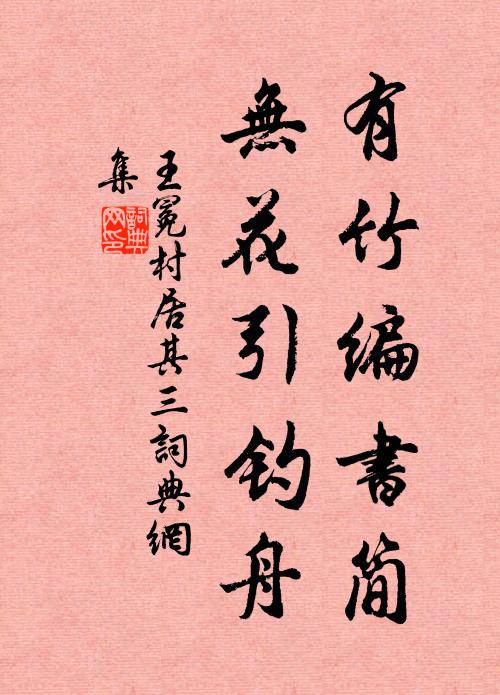 有竹编書简
無花引钓舟
王冕村居其三詞典網
集
詞典
网印